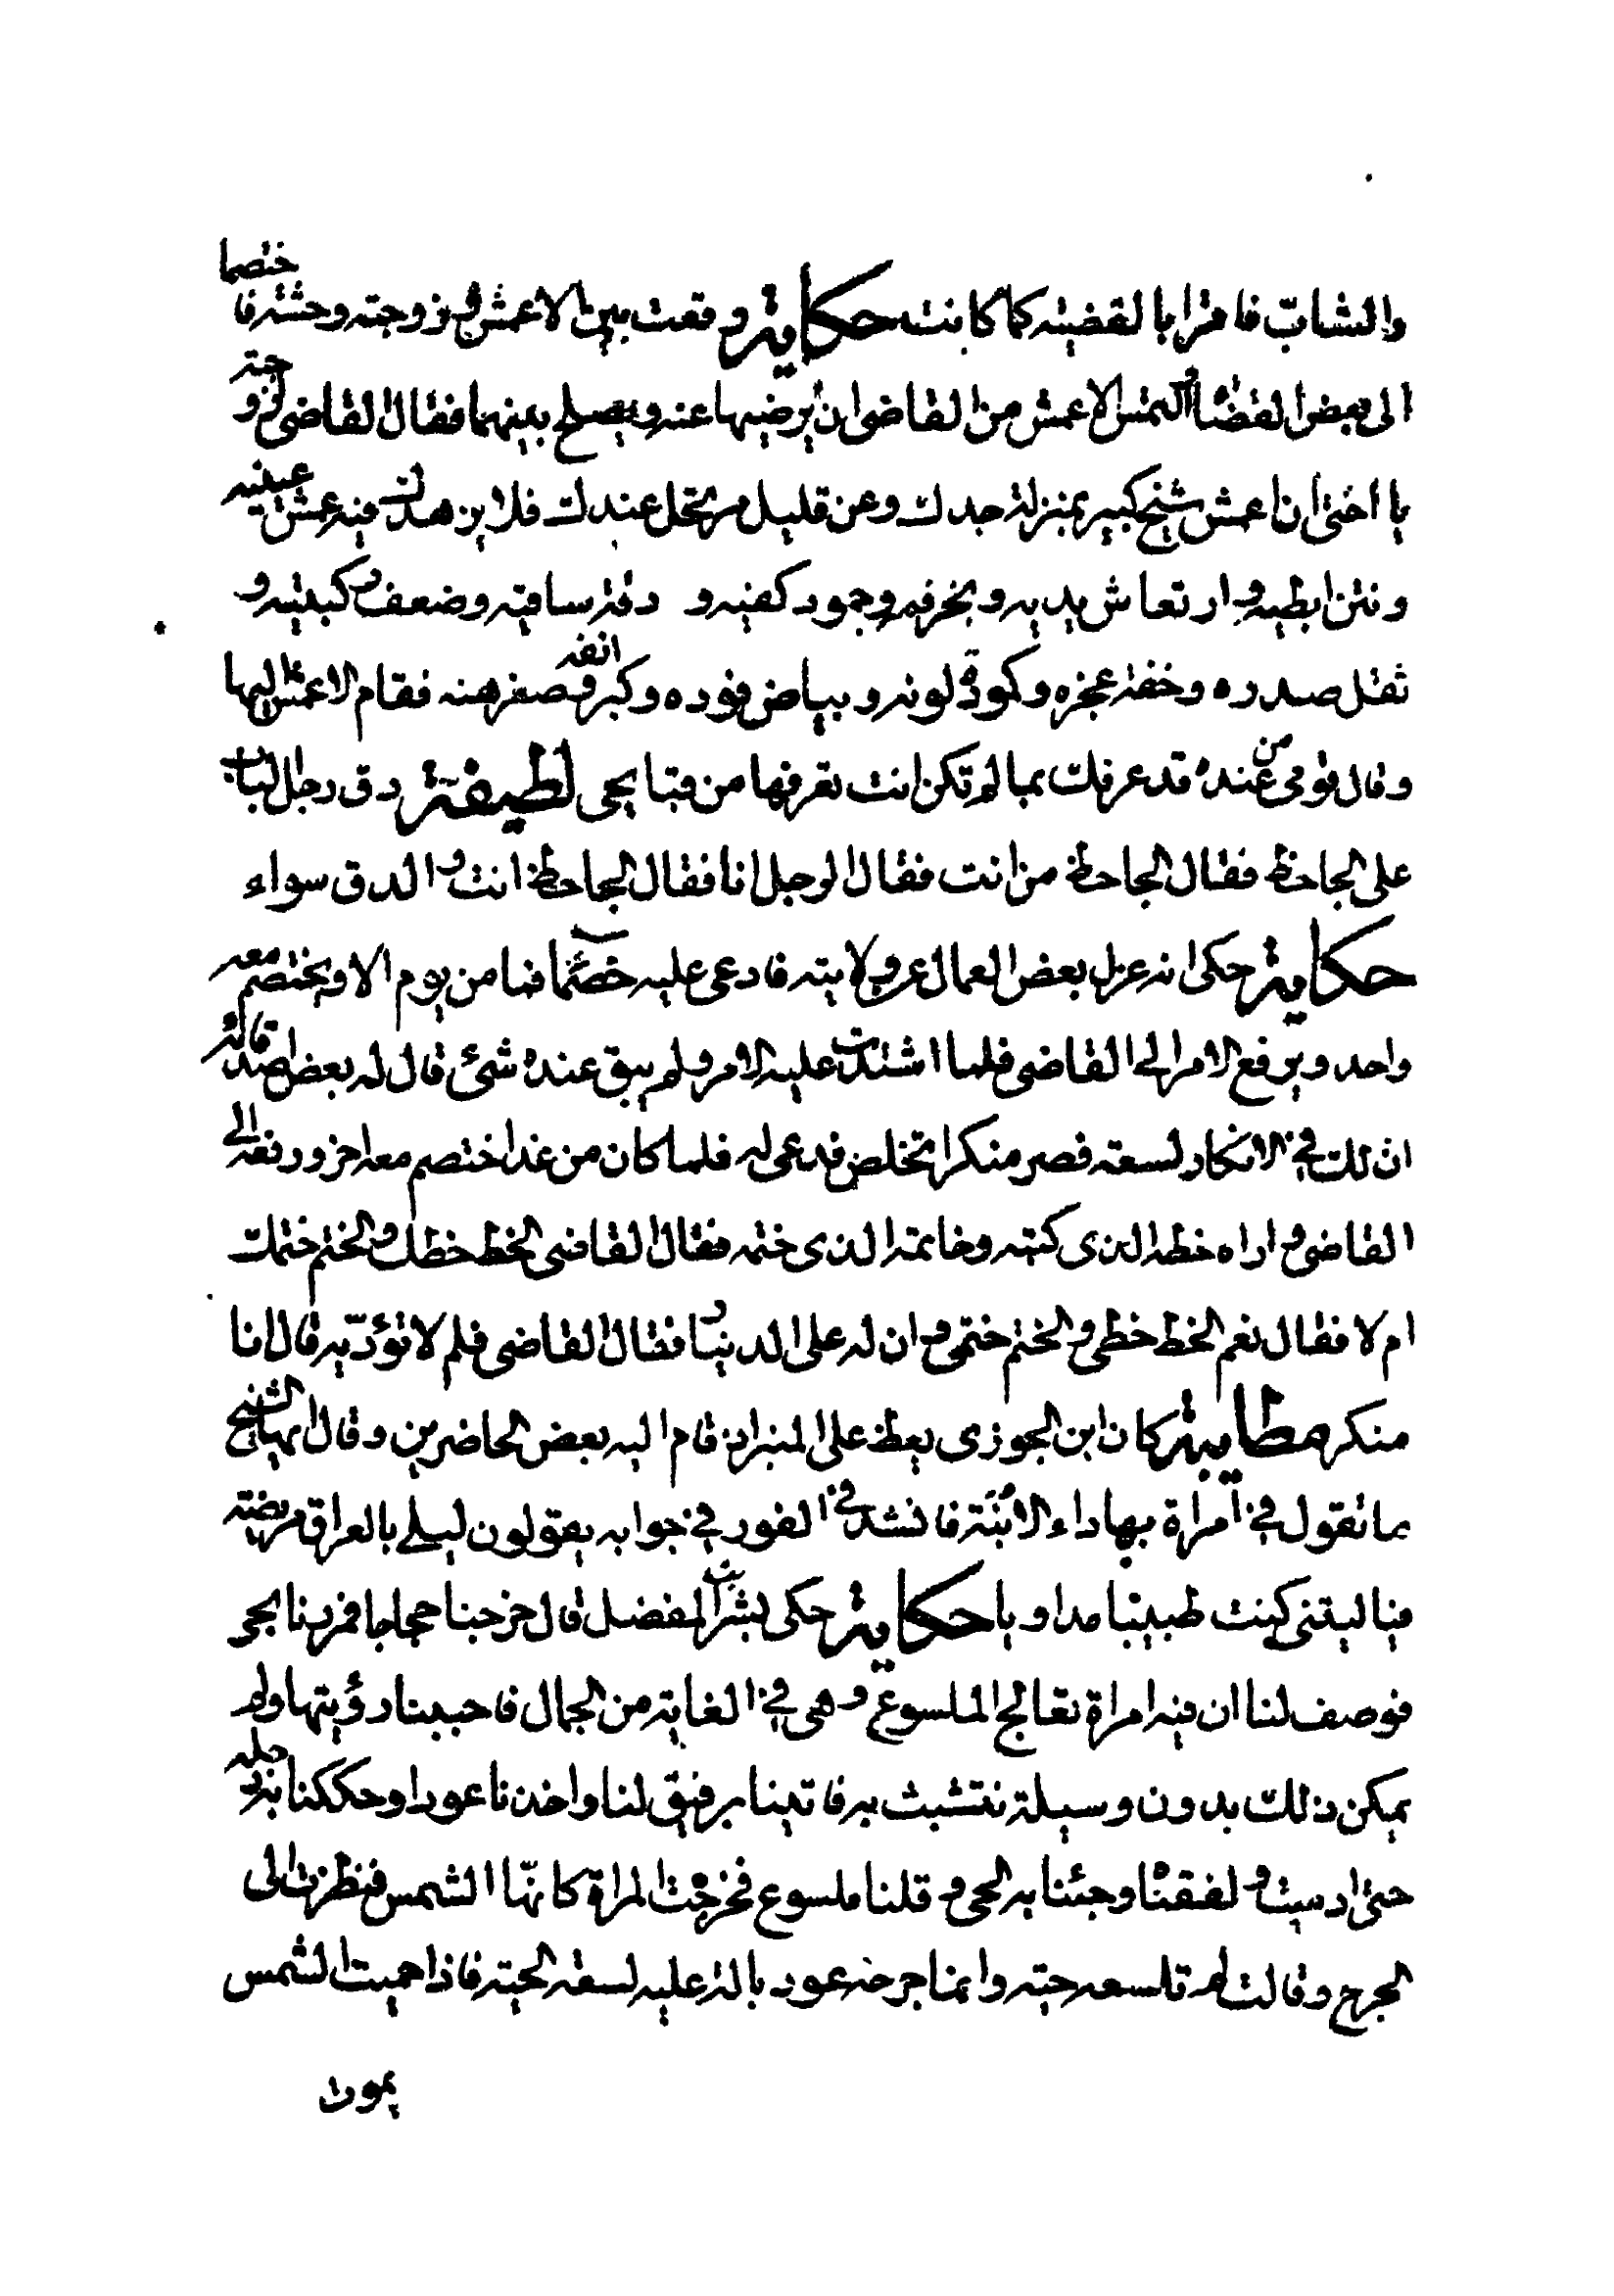 والشاب فاقرا بالقضية كما كانت حكاية وقعت بين الاعمش و زوجته وحشة فاختصما
الى بعض القضاة والتمس الاعمش من القاضى ان يرضيها عنه ويصلح بينهما فقال القاضى لزوجته
يا اختى ان اعمش شيخ كبير بمنزلة جدك وعن قليل مرتحل عندك فلا يزهدنك فيه عمش عينيه
ونتن ابطيه و ارتعاش يديه و بخر فيه وجمود كفيه و دقة ساقيه وضعف ركبتيه و
ثقل صدره وخفة عجزه وكمودة لونه و بياض فوده وكبر انفه و صغر هنه فقام الاعمش اليها
وقال قومى من عنده قد عرفك بما لم تكن انت تعرفها من قبايحى لطيفة دق رجل الباب
على الجاحظ فقال الجاحظ من انت فقال الرجل انا فقال الجاحظ انت و الدق سواء
حكاية حكى انه عزل بعض العمال عن ولايته فادعى عليه خصما فما من يوم الا ويختصم معه
واحد ويرفع الامر الى القاضى فلما اشتدت عليه الامر ولم يبق عنده شئ قال له بعض اصدقائه
ان لك فى الانكار لسعة فصر منكرا تخلص فدعى له فلما كان من غد اختصم معه اخر ورفعه الى
القاضى و اراه خطه الذى كتبه وخاتمه الذى ختمه فقال القاضى الخط خطك و الختم ختمك
ام لا فقال نعم الخط خطى و الختم ختمى و ان له على الدنيا فقال القاضى فلم لا تؤديه قال انا
منكر مطايبة كان ابن الجوزى يعظ على المنبر اذ قام اليه بعض الحاضرين وقال ايها الشيخ
ما تقول فى امراة بها داء الابنة فانشد فى الفور فى جوابه يقولون ليلى بالعراق مريضة
فيا ليتنى كنت طبيبا مداويا حكاية حكى بشر بن المفضل قال خرجنا حجاجا فمررنا بحى
فوصف لنا ان فيه امراة تعالج الملسوع و هى فى الغاية من الجمال فاحببنا رؤيتها ولم
يمكن ذلك بدون وسيلة نتشبث به فاتينا برفيق لنا واخذنا عودا وحككنا به رجله
حتى ادميت و لففناه وجئنا به الحى و قلنا ملسوع فخرجت المراة كانها الشمس فنظرت الى
الجرح وقالت لم تلسعه حية وانما جرحه عود بالت عليه لسقه الحية فاذا حميت الشمس
يموت